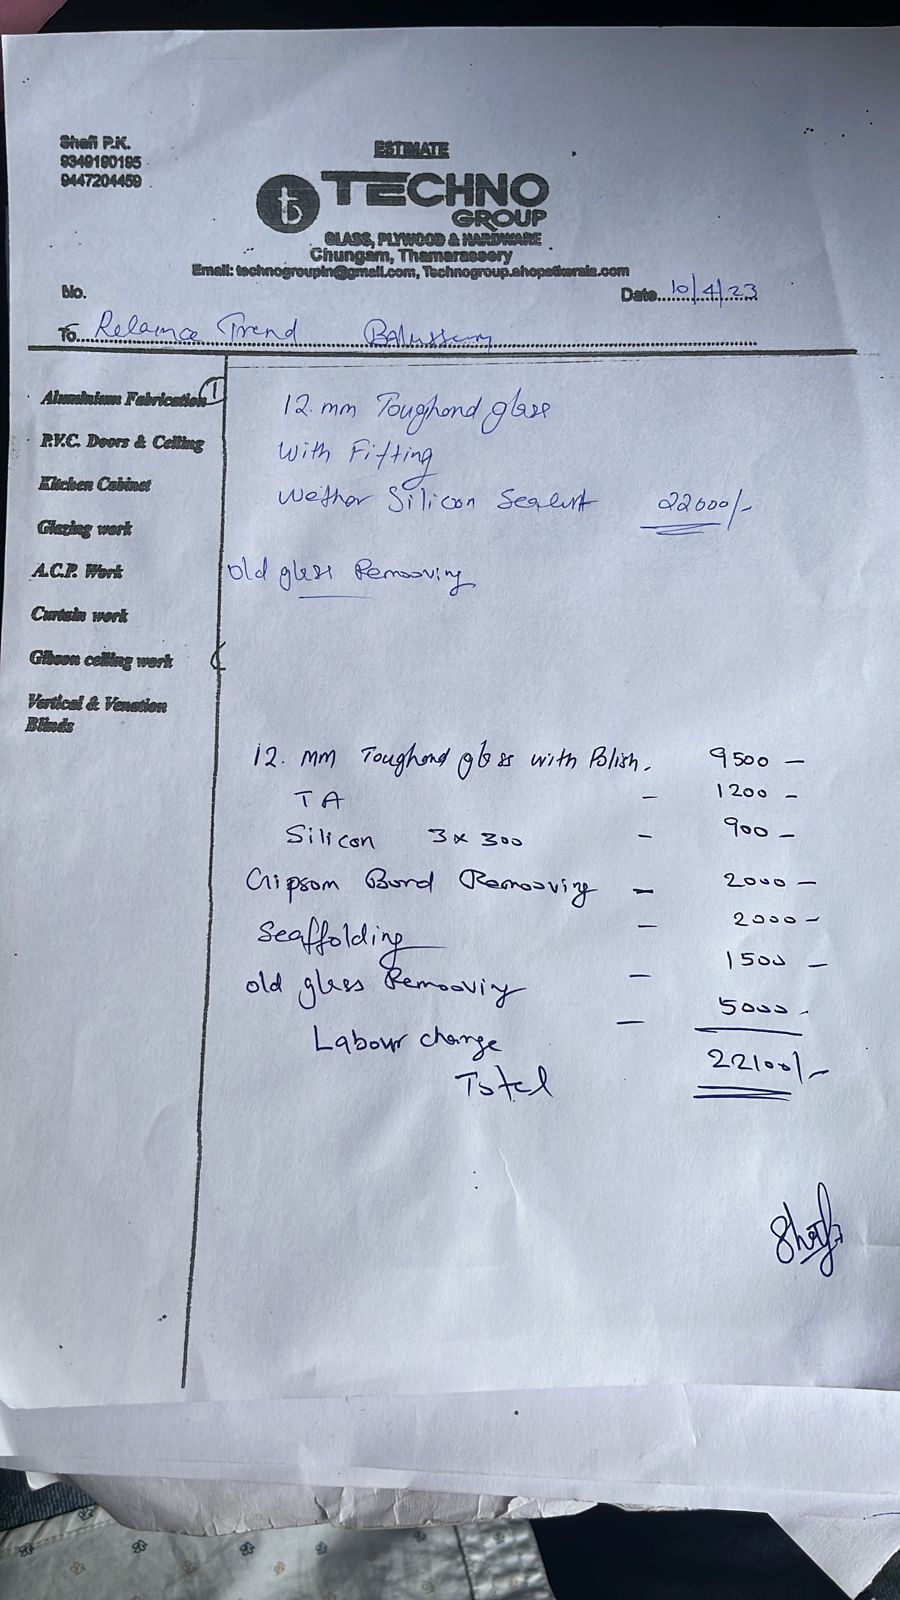 Shafi P.K.
9349190195
9447204459
ESTIMATE
TECHNO
GROUP
GLASS, PLYWOOD & HARDWARE
Chungam, Thamarassery
Email: technogroupin@gmail.com, Technogroup.shopatkerala.com
No.
Date 10/4/23
To Relaince Trend Balussery
Aluminium Fabrication
P.V.C. Doors & Ceiling
Kitchen Cabinet
Glazing work
A.C.P. Work
Curtain work
Gibson ceiling work
Vertical & Venation
Blinds
1
12.mm Toughond glass
With Fitting
Wether Silicon Sealent 22000/-
Old glass Remooving
12. mm Toughond glass with Polish. 9500 -
TA - 1200 -
Silicon 3x300 - 900 -
Gipsom Bord Remooving - 2000 -
Scaffolding - 2000 -
old glass Remooving - 1500 -
Labour charge - 5000 -
Total 22100/-